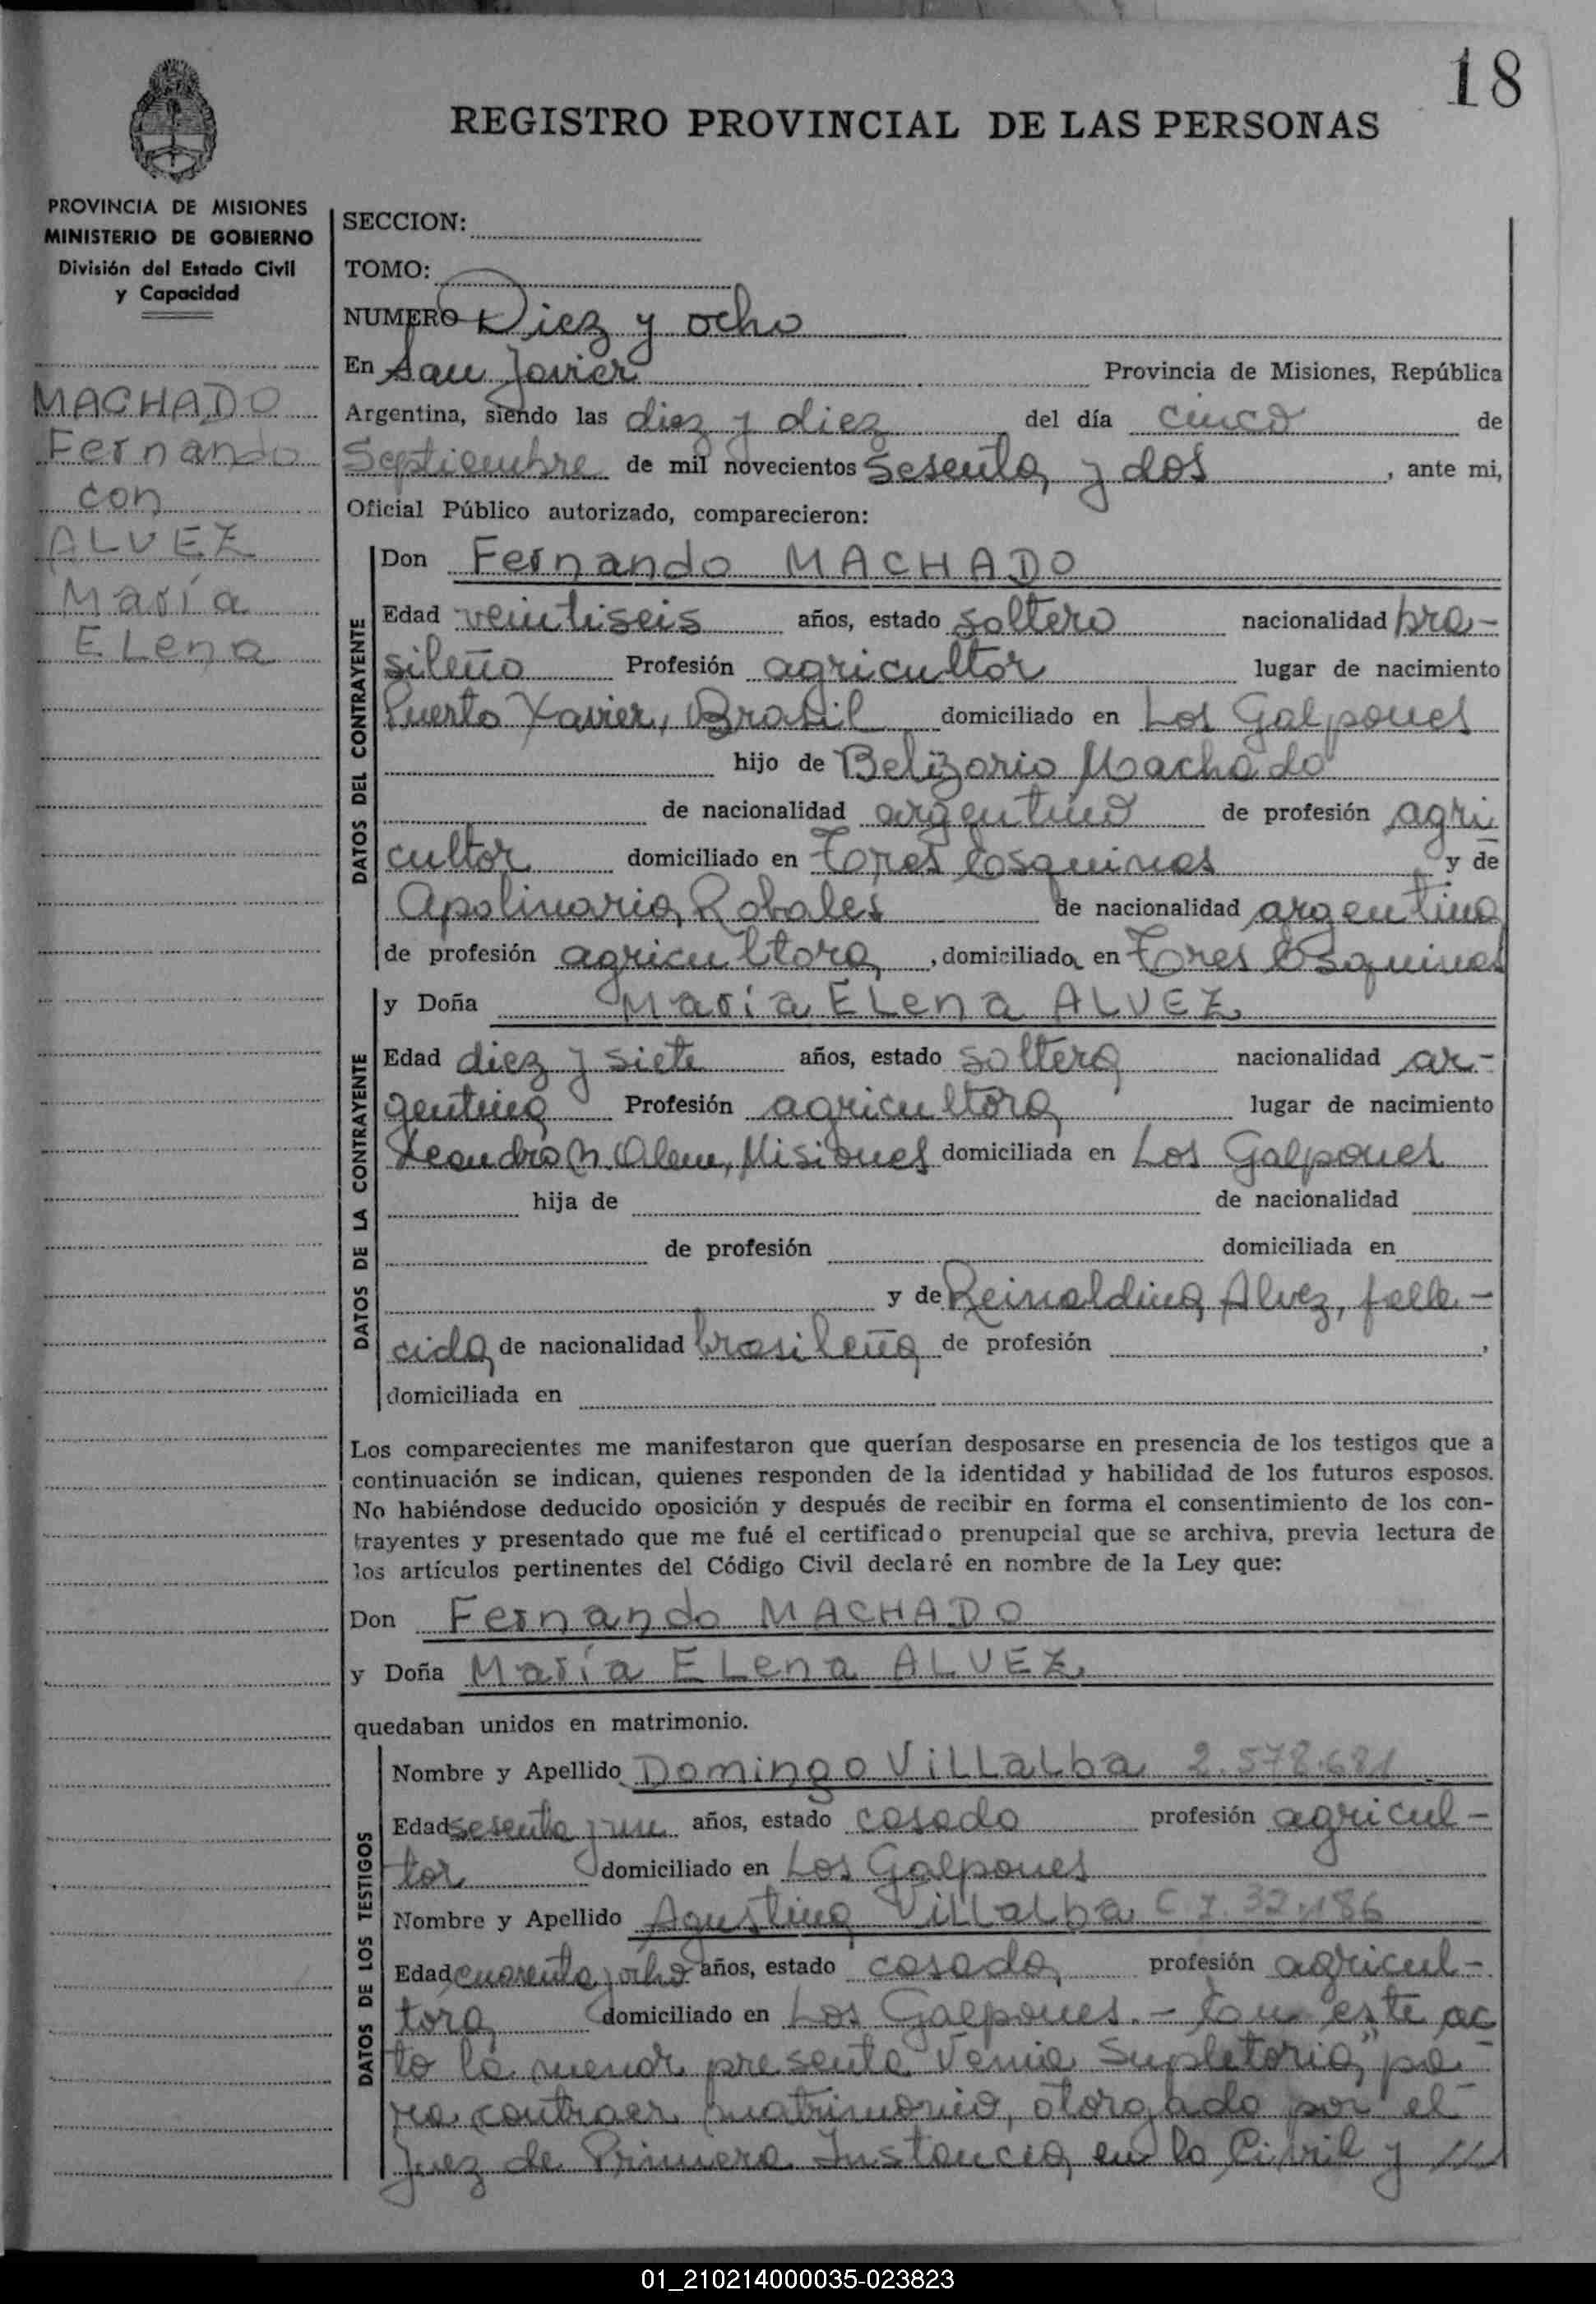 18
REGISTRO PROVINCIAL DE LAS PERSONAS
PROVINCIA DE MISIONES
MINISTERIO DE GOBIERNO
División del Estado Civil
y Capacidad
MACHADO
Fernando
con
ALVEZ
María
ELena
SECCION:
TOMO:
NUMERO Diez y ocho
En San Javier Provincia de Misiones, República
Argentina, siendo las diez y diez del día cinco de
Septiembre de mil novecientos Sesenta y dos, ante mi,
Oficial Público autorizado, comparecieron:
DATOS DEL CONTRAYENTE
Don Fernando MACHADO
Edad veintiseis años, estado soltero nacionalidad bra-
sileño Profesión agricultor lugar de nacimiento
Puerto Xavier, Brasil domiciliado en Los Galpones
hijo de Belizario Machado
de nacionalidad argentino de profesión agri
cultor domiciliado en Tores Esquinas y de
Apolinaria Robales de nacionalidad argentina
de profesión agricultora, domiciliada en Tores Esquinas
DATOS DE LA CONTRAYENTE
y Doña María ELena ALVEZ
Edad diez y siete años, estado soltera nacionalidad ar-
gentina Profesión agricultora lugar de nacimiento
Leandro N. Alem, Misiones domiciliada en Los Galpones
hija de de nacionalidad
de profesión domiciliada en
y de Reinaldina Alvez, falle-
cida de nacionalidad brasileña de profesión ,
domiciliada en
Los comparecientes me manifestaron que querían desposarse en presencia de los testigos que a
continuación se indican, quienes responden de la identidad y habilidad de los futuros esposos.
No habiéndose deducido oposición y después de recibir en forma el consentimiento de los con-
trayentes y presentado que me fué el certificado prenupcial que se archiva, previa lectura de
los artículos pertinentes del Código Civil declaré en nombre de la Ley que:
Don Fernando MACHADO
y Doña María ELena ALVEZ
quedaban unidos en matrimonio.
DATOS DE LOS TESTIGOS
Nombre y Apellido Domingo ViLLaLba 2.578.681
Edad sesenta y un años, estado casado profesión agricul-
tor domiciliado en Los Galpones
Nombre y Apellido Agustina ViLLaLba C I. 32.186
Edad cuarenta y ocho años, estado casada profesión agricul-
tora domiciliado en Los Galpones.- En este ac
to la menor presenta "Venia Supletoria" pa-
ra contraer matrimonio, otorgado por el
Juez de Primera Instancia en lo Civil y ///
01_210214000035-023823